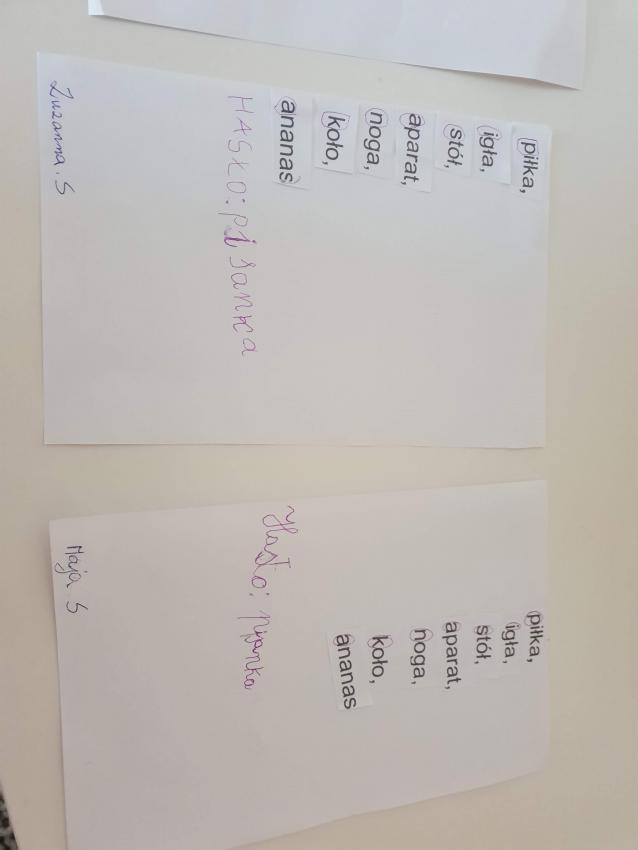 piłka,
igła,
stół,
aparat,
noga,
koło,
ananas
HASŁO: pisanka
Zuzanna. S
piłka,
igła,
stół,
aparat,
noga,
koło,
ananas
Hasło: pisanka
Maja S